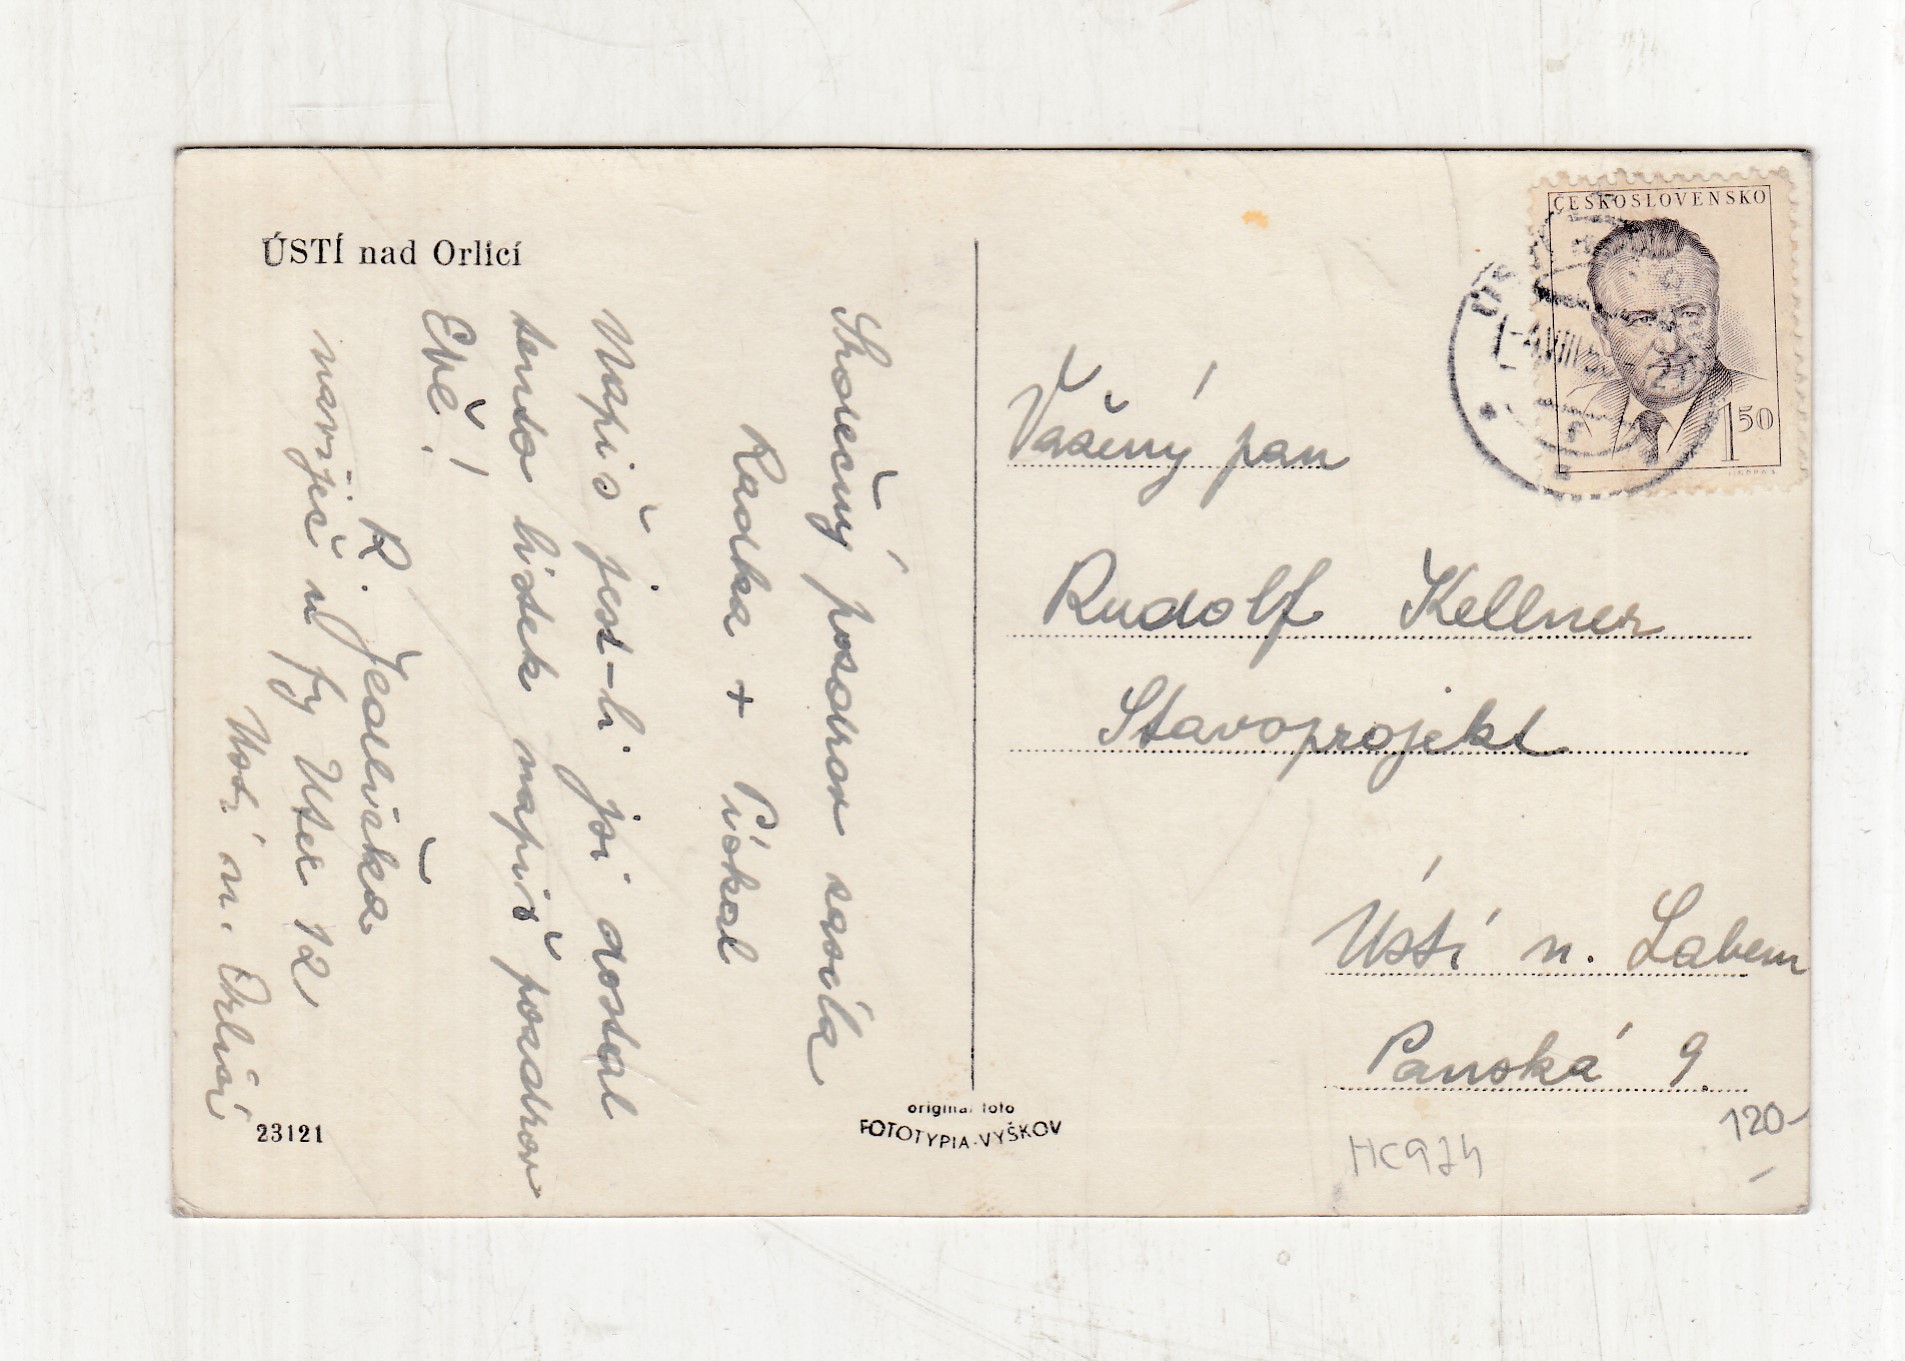 ÚSTÍ nad Orlicí
Srdečný pozdrav zasílá
Radka + Piskal
Napiš jest-li jsi dostal
tento lístek napiš pozdrav
Evě!
R. Jedlička
u fy Utex 12
Ústí n. Orlicí
23121
original foto
FOTOTYPIA-VYŠKOV
ČESKOSLOVENSKO
1 50
Vážený pan
Rudolf Kellner
Stavoprojekt
Ústí n. Labem
Panská 9.
120-
HC974